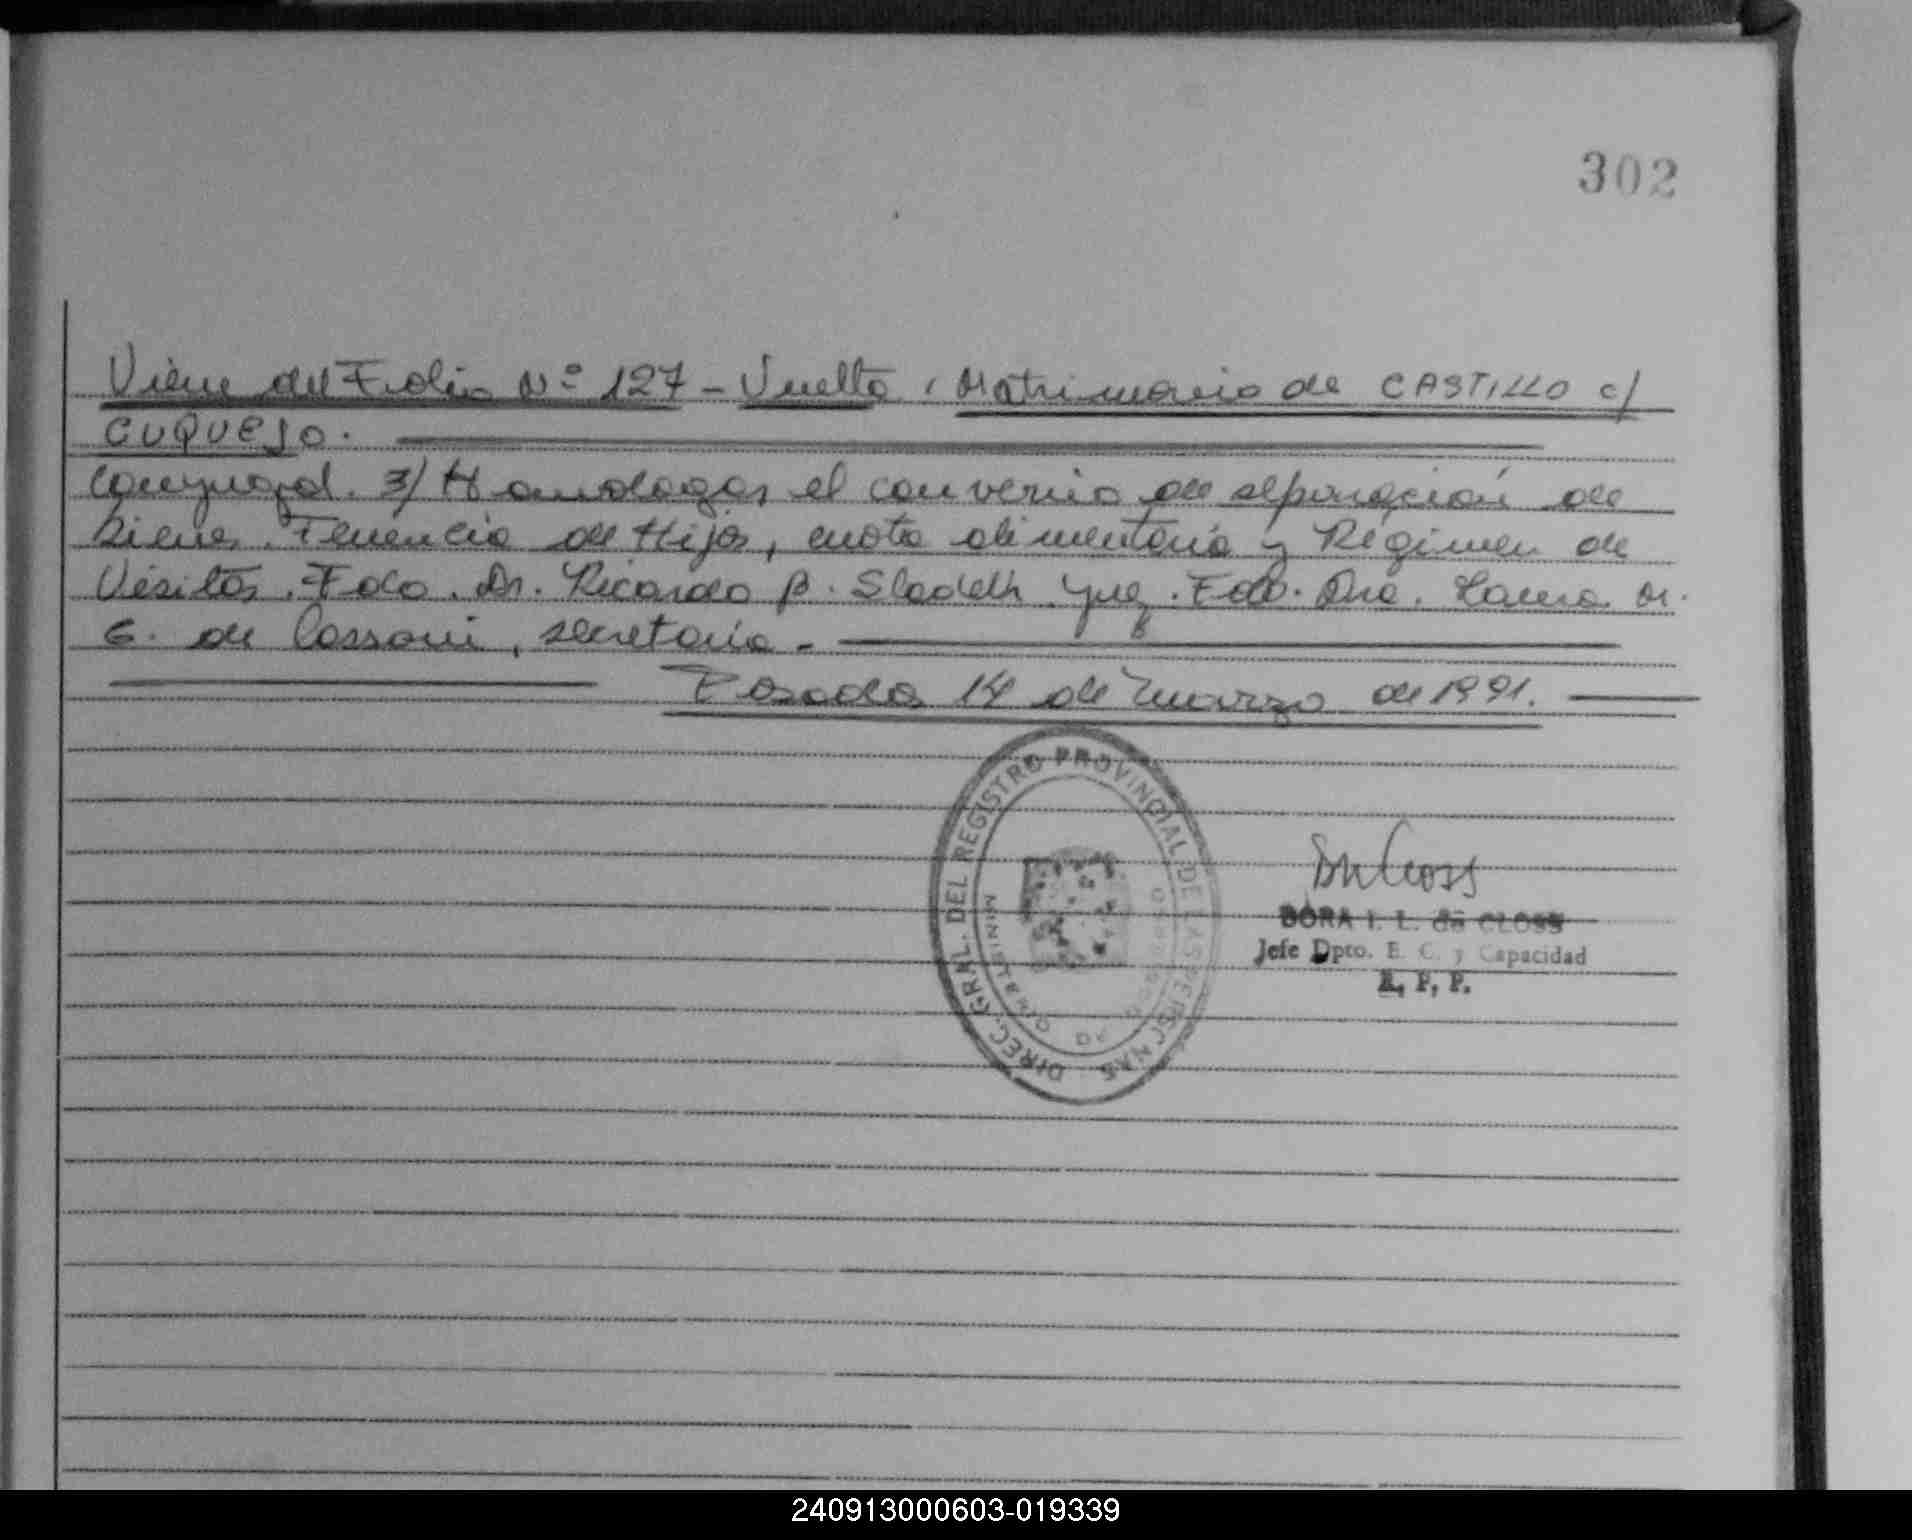 302
Viene del Folio Nº 127 - Vuelta, Matrimonio de CASTILLO c/
CUQUEJO.
Conyugal. 3/ Homologar el convenio de separación de
bienes. Tenencia de Hijos, cuota alimentaria y Régimen de
Visitas. Fdo. Dr. Ricardo B. Juez. Fdo. Dra. M.
G. de Cassoni, secretaria.-
Posadas 14 de marzo de 1991.
DIREC. GRAL. DEL REGISTRO PROVINCIAL DE LAS PERSONAS
MINISTERIO DE GOBIERNO
DORA I. L. de CLOSS
Jefe Dpto. E. C. y Capacidad
R. P. P.
240913000603-019339